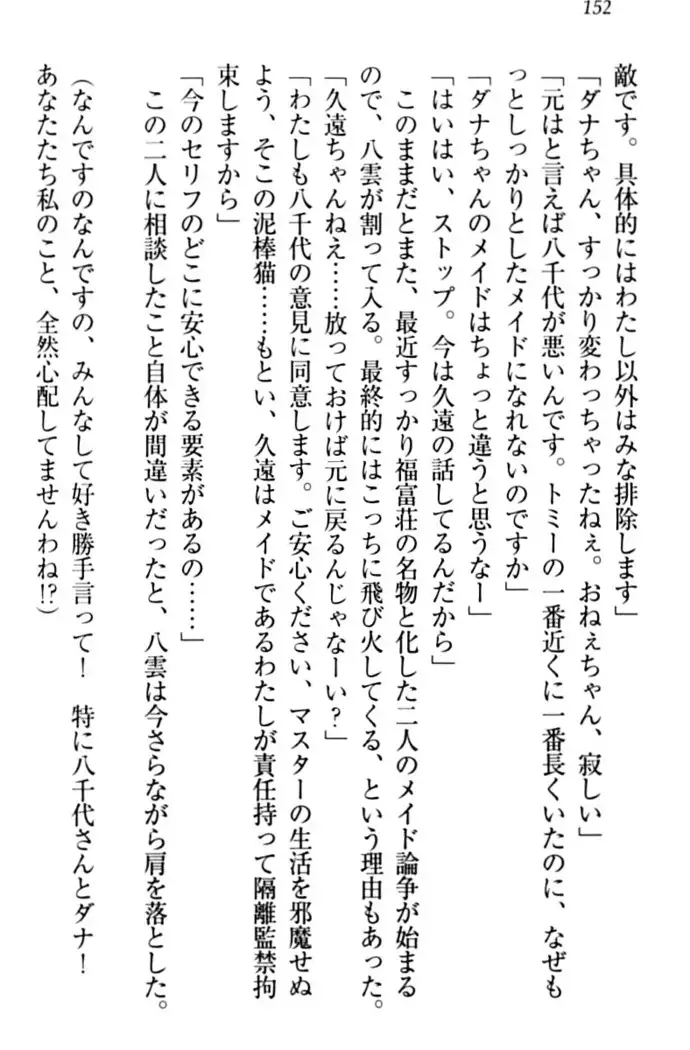 152
敵です。具体的にはわたし以外はみな排除します」
「ダナちゃん、すっかり変わっちゃったねぇ。おねぇちゃん、寂しい」
「元はと言えば八千代が悪いんです。トミーの一番近くに一番長くいたのに、なぜも
っとしっかりとしたメイドになれないのですか」
「ダナちゃんのメイドはちょっと違うと思うなー」
「はいはい、ストップ。今は久遠の話してるんだから」
このままだとまた、最近すっかり福富荘の名物と化した二人のメイド論争が始まる
ので、八雲が割って入る。最終的にはこっちに飛び火してくる、という理由もあった。
「久遠ちゃんねえ……放っておけば元に戻るんじゃなーい？」
「わたしも八千代の意見に同意します。ご安心ください、マスターの生活を邪魔せぬ
よう、そこの泥棒猫……もとい、久遠はメイドであるわたしが責任持って隔離監禁拘
束しますから」
「今のセリフのどこに安心できる要素があるの……」
この二人に相談したこと自体が間違いだったと、八雲は今さらながら肩を落とした。
（なんですのなんですの、みんなして好き勝手言って！　特に八千代さんとダナ！
あなたたち私のこと、全然心配してませんわね!?）